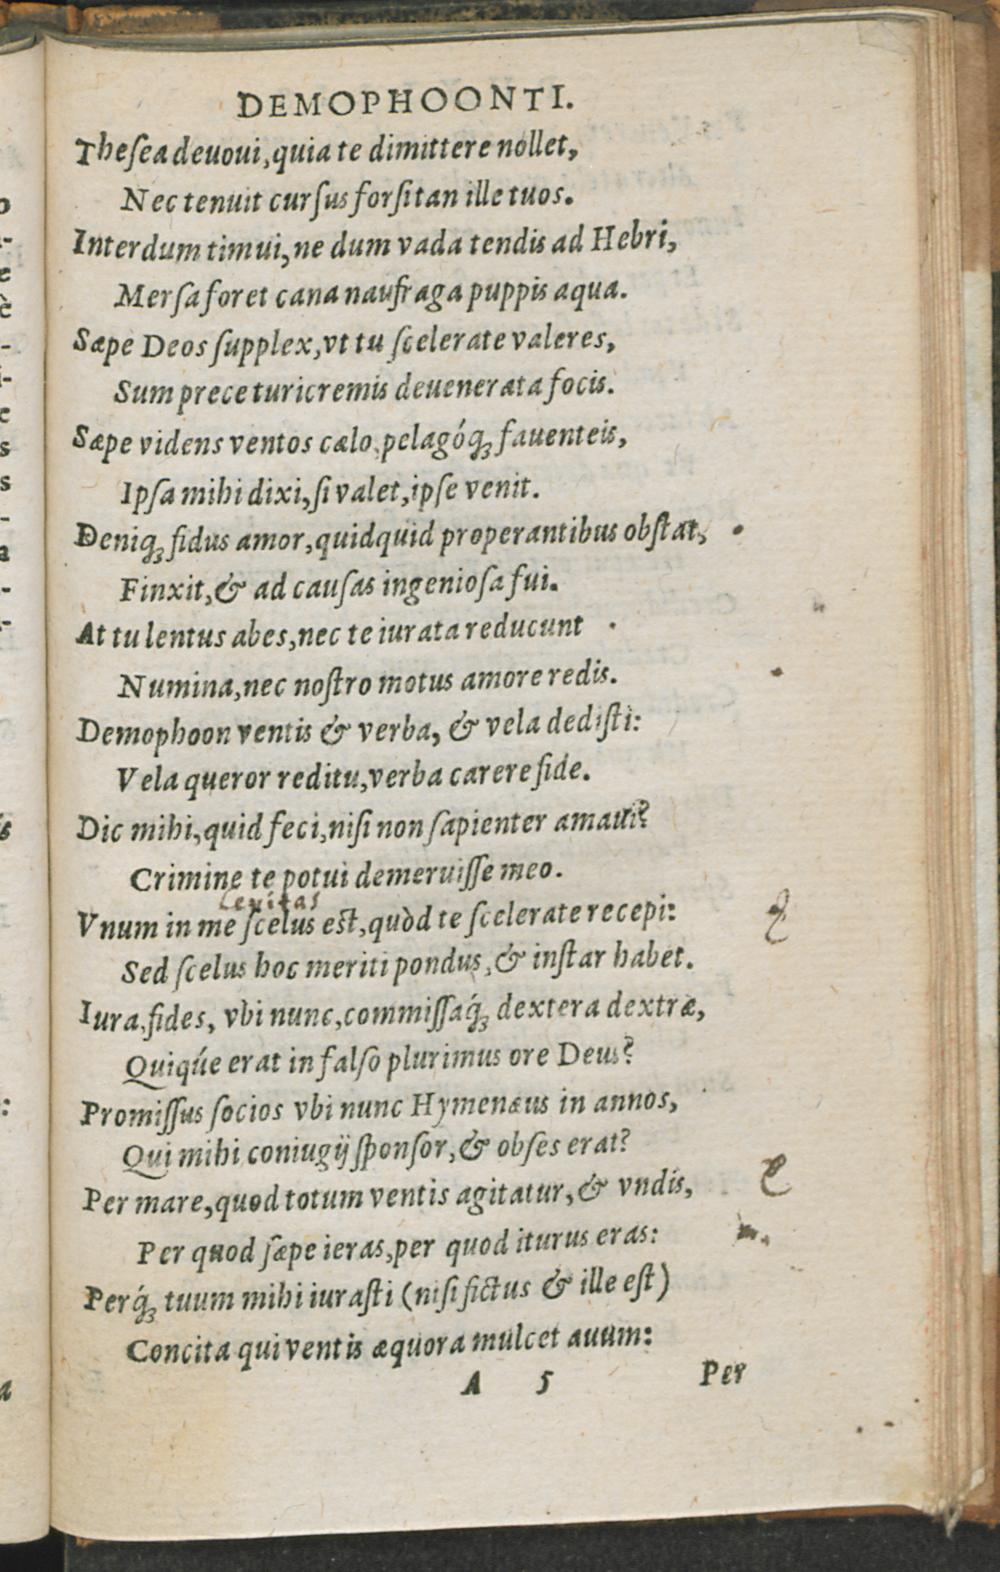 DEMOPHOONTI.
Theſea deuoui, quia te dimittere nollet,
Nec tenuit curſus forſitan ille tuos.
Interdum timui, ne dum vada tendis ad Hebri,
Merſa foret cana naufraga puppis aqua.
Sæpe Deos ſupplex, vt tu ſcelerate valeres,
Sum prece turicremis deuenerata focis.
Sæpe videns ventos cælo, pelagóq; fauenteis,
Ipſa mihi dixi, ſi valet, ipſe venit.
Deniq; fidus amor, quidquid properantibus obſtat,
Finxit, & ad cauſas ingenioſa fui.
At tu lentus abes, nec te iurata reducunt
Numina, nec noſtro motus amore redis.
Demophoon ventis & verba, & vela dediſti:
Vela queror reditu, verba carere fide.
Dic mihi, quid feci, niſi non ſapienter amaui?
Crimine te potui demeruiſſe meo.
Leuitas
Vnum in me ſcelus eſt, quòd te ſcelerate recepi:
Sed ſcelus hoc meriti pondus, & inſtar habet.
Iura, fides, vbi nunc, commiſſaq́; dextera dextræ,
Quiqúe erat in falſo plurimus ore Deus?
Promiſſus ſocios vbi nunc Hymenæus in annos,
Qui mihi coniugij ſponſor, & obſes erat?
Per mare, quod totum ventis agitatur, & vndis,
Per quod ſæpe ieras, per quod iturus eras:
Perq́; tuum mihi iuraſti (niſi fictus & ille eſt)
Concita qui ventis æquora mulcet auum:
A 5 Per